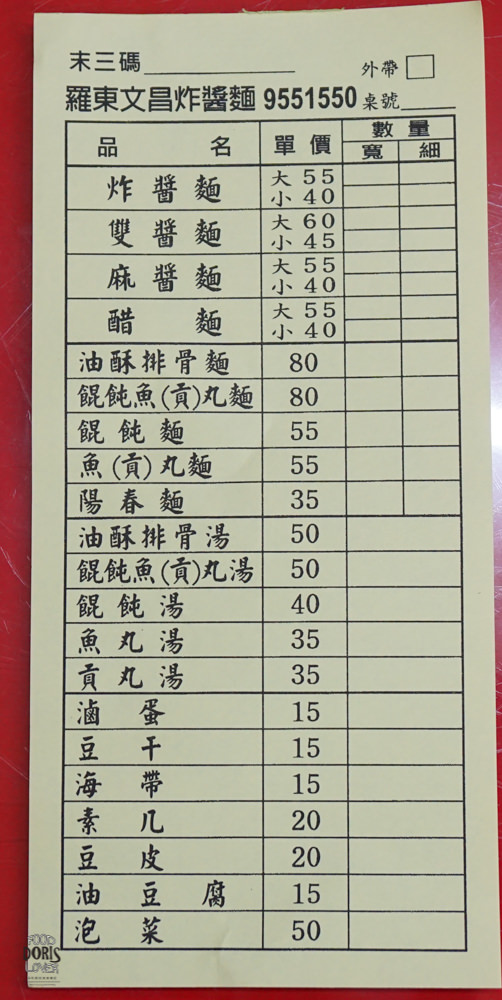 末三碼 外帶
羅東文昌炸醬麵 9551550 桌號
品名 單價 數量
寬 細
炸醬麵 大 55
小 40
雙醬麵 大 60
小 45
麻醬麵 大 55
小 40
醋麵 大 55
小 40
油酥排骨麵 80
餛飩魚(貢)丸麵 80
餛飩麵 55
魚(貢)丸麵 55
陽春麵 35
油酥排骨湯 50
餛飩魚(貢)丸湯 50
餛飩湯 40
魚丸湯 35
貢丸湯 35
滷蛋 15
豆干 15
海帶 15
素几 20
豆皮 20
油豆腐 15
泡菜 50
FOOD
DORIS
LOVER